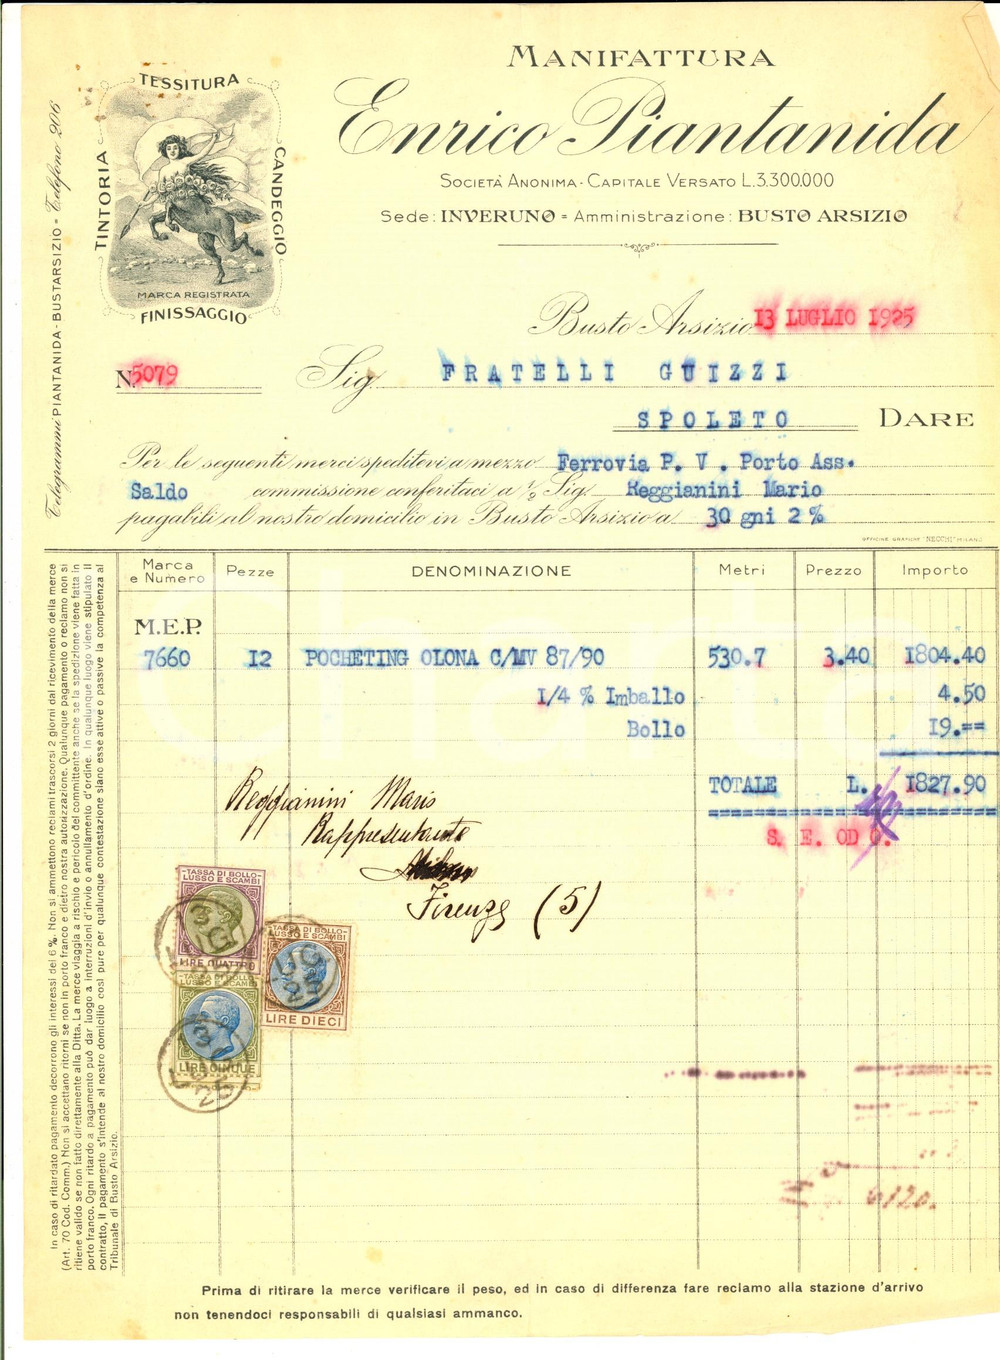 MANIFATTURA
Enrico Piantanida
SOCIETÀ ANONIMA - CAPITALE VERSATO L.3.300.000
Sede: INVERUNO = Amministrazione: BUSTO ARSIZIO
TESSITURA
TINTORIA
CANDEGGIO
MARCA REGISTRATA
FINISSAGGIO
Telegrammi PIANTANIDA - BUSTARSIZIO = Telefono 206
Busto Arsizio 13 LUGLIO 1925
N. 5079
Sig. FRATELLI GUIZZI
SPOLETO DARE
Per le seguenti merci speditevi a mezzo Ferrovia P. V. Porto Ass.
Saldo commissione conferitaci a ½ Sig. Reggianini Mario
pagabili al nostro domicilio in Busto Arsizio a 30 gni 2%
OFFICINE GRAFICHE "NECCHI" MILANO
Marca e Numero Pezze DENOMINAZIONE Metri Prezzo Importo
M.E.P.
7660 12 POCHETING OLONA C/MV 87/90 530.7 3.40 1804.40
1/4 % Imballo 4.50
Bollo 19.==
TOTALE L. 1827.90
S. E. OD O.
Reggianini Mario
Rappresentante
Firenze (5)
TASSA DI BOLLO
LUSSO E SCAMBI
LIRE QUATTRO
TASSA DI BOLLO
LUSSO E SCAMBI
LIRE DIECI
TASSA DI BOLLO
LUSSO E SCAMBI
LIRE CINQUE
In caso di ritardato pagamento decorrono gli interessi del 6%. Non si ammettono reclami trascorsi 2 giorni dal ricevimento della merce
(Art. 70 Cod. Comm.) Non si accettano ritorni se non in porto franco e dietro nostra autorizzazione. Qualunque pagamento o reclamo non si
ritiene valido se non fatto direttamente alla Ditta. La merce viaggia a rischio e pericolo del committente anche se la spedizione viene fatta in
porto franco. Ogni ritardo a pagamento può dar luogo a interruzioni d'invio o annullamento d'ordine. In qualunque luogo viene stipulato il
contratto, il pagamento s'intende al nostro domicilio così pure per qualunque contestazione siano esse attive o passive la competenza al
Tribunale di Busto Arsizio.
Prima di ritirare la merce verificare il peso, ed in caso di differenza fare reclamo alla stazione d'arrivo
non tenendoci responsabili di qualsiasi ammanco.